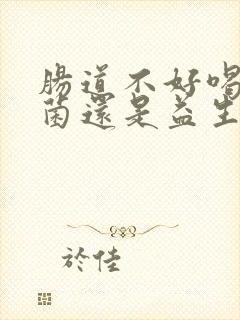 腸道不好喝
菌還是益生
於佳